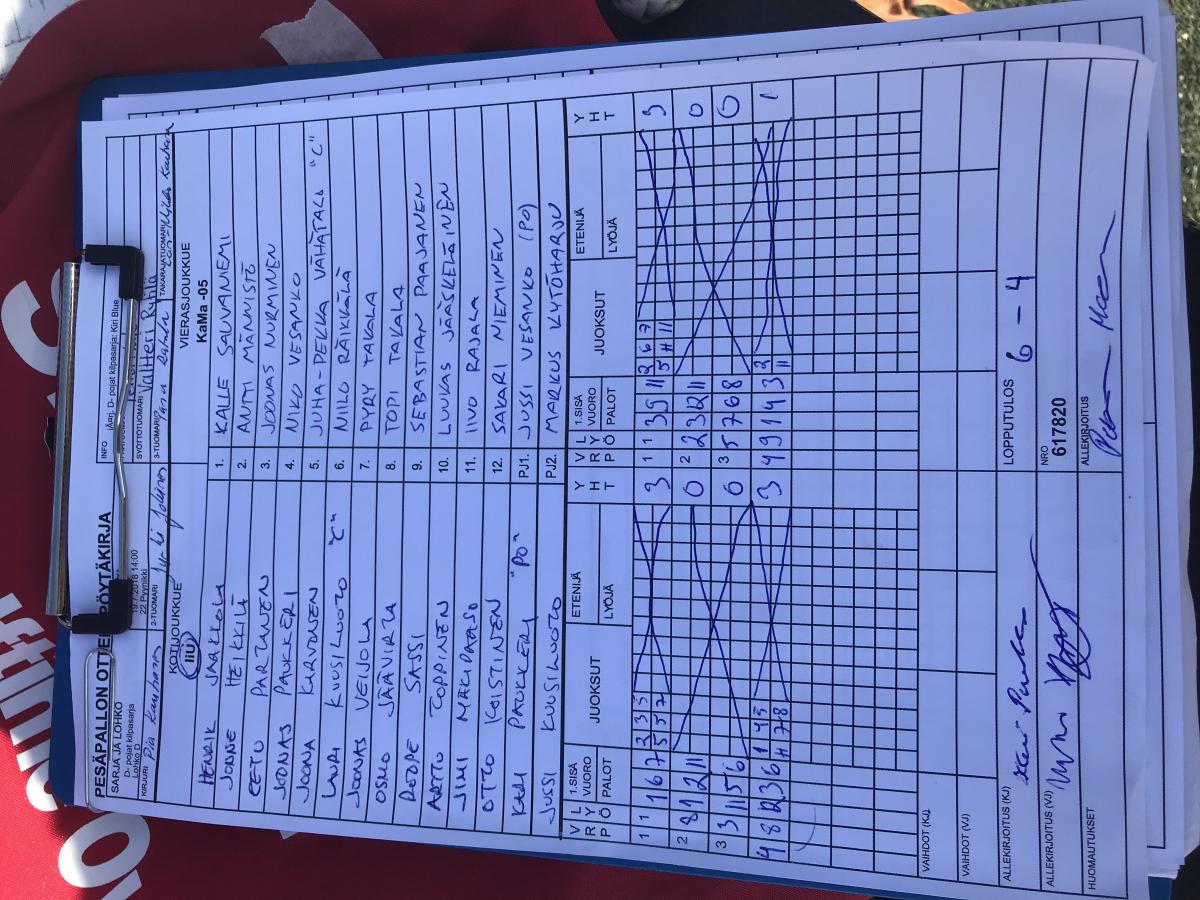 PESÄPALLON OTTELUPÖYTÄKIRJA
SARJA JA LOHKO
D- pojat kilpasarja
Lohko D
19.7.2018 14:00
22 Pyynikki
INFO
D- pojat kilpasarja: Kiri Blue
KIRJURI
2-TUOMARI
SYÖTTÖTUOMARI Valtteri
3-TUOMARI
TAKARAJATUOMARI
KOTIJOUKKUE
IiU
VIERASJOUKKUE
KaMa -05
HENRIK JÄRKKÖLÄ 1. KALLE SALIVANIEMI
JONNE HEIKKILÄ 2. ANTTI MÄNNISTÖ
EETU PARTANEN 3. JOONAS NURMINEN
JOONAS PAUKKERI 4. NIKO VESANKO
JOONA KARVONEN 5. JUHA-PEKKA VÄHÄTALO "C"
LAURI KUUSILUOTO "C" 6. NIILO RÄIKKÄLÄ
JOONAS VEIJOLA 7. PYRY TAKALA
OSMO JÄÄVIRTA 8. TOPI TAKALA
ROOPE SASSI 9. SEBASTIAN PAAJANEN
ARTTU TOPPINEN 10. LUUKAS JÄÄSKELÄINEN
JIMI 11. IIVO RAJALA
OTTO KOISTINEN 12. SAKARI NIEMINEN
KARI PAUKKERI "PO" PJ1. JUSSI VESANKO (PO)
JUSSI KUUSILUOTO PJ2. MARKUS KYTÖHARJU
V R L Y Ö 1.SISÄ VUORO PALOT JUOKSUT ETENIJÄ LYÖJÄ Y H T V R L Y Ö 1.SISÄ VUORO PALOT JUOKSUT ETENIJÄ LYÖJÄ Y H T
1 1 1 6 7 2 3 5 5 5 7 3 1 1 3 9 11 2 6 7 5 11 11 3
2 8 9 12 11 0 2 2 3 12 11 0
3 3 11 5 6 0 3 5 7 6 8 0
4 8 12 3 6 1 4 5 11 7 8 3 4 9 1 4 3 2 11 1
VAIHDOT (KJ)
VAIHDOT (VJ)
ALLEKIRJOITUS (KJ)
LOPPUTULOS 6 - 4
ALLEKIRJOITUS (VJ)
NRO
617820
HUOMAUTUKSET
ALLEKIRJOITUS